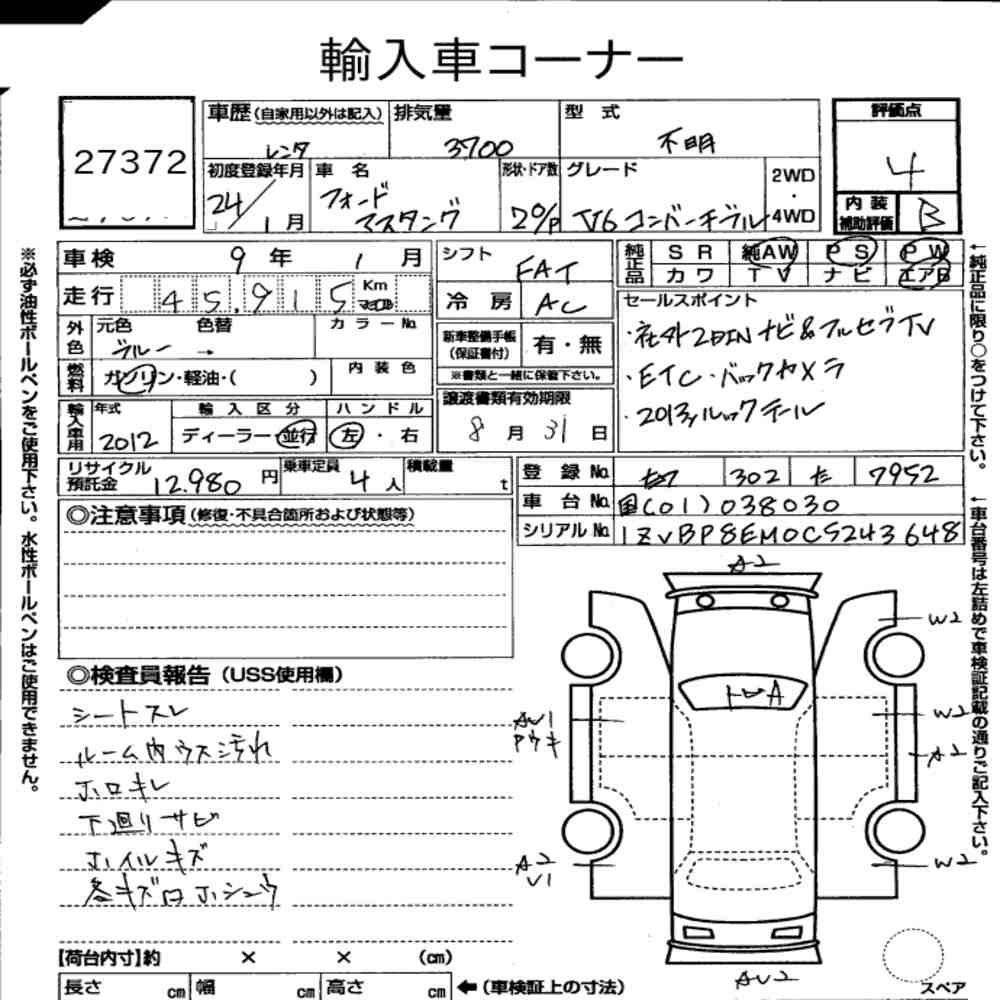 輸入車コーナー
27372
車歴(自家用以外は記入) レンタ
排気量 3700
型式 不明
評価点 4
内装補助評価 B
初度登録年月 24/1月
車名 フォード マスタング
形状・ドア数 2o/p
グレード V6 コンバーチブル
2WD・4WD
車検 9年 1月
走行 45,915 Km マイル
シフト FAT
冷房 AC
純正品 SR 純AW PS PW
カワ TV ナビ エアB
外色 元色 ブルー 色替 → カラーNo.
燃料 ガソリン・軽油・( ) 内装色
新車整備手帳(保証書付) 有・無
※書類と一緒に保管下さい。
セールスポイント
・社外2DIN ナビ&フルセグTV
・ETC・バックカメラ
・2013yルックテール
輸入車用 年式 2012
輸入区分 ディーラー・並行
ハンドル 左・右
譲渡書類有効期限 8月31日
リサイクル預託金 12.980円
乗車定員 4人
積載量 t
登録No. 302 た 7952
車台No. 国(01)038030
シリアルNo. 1ZVBP8EM0C5243648
◎注意事項(修復・不具合箇所および状態等)
◎検査員報告(USS使用欄)
シートスレ
ルーム内ウス汚れ
ホロキレ
下廻りサビ
ホイルキズ
各キズロホシュウ
A2
W2
トレA
AU1
アウキ
W2
A2
A2
V1
W2
AU2
スペア
【荷台内寸】約 × × (cm)
長さ cm 幅 cm 高さ cm ←(車検証上の寸法)
※必ず油性ボールペンをご使用下さい。水性ボールペンはご使用できません。
←純正品に限り○をつけて下さい。
←車台番号は左詰めで車検証記載の通りご記入下さい。